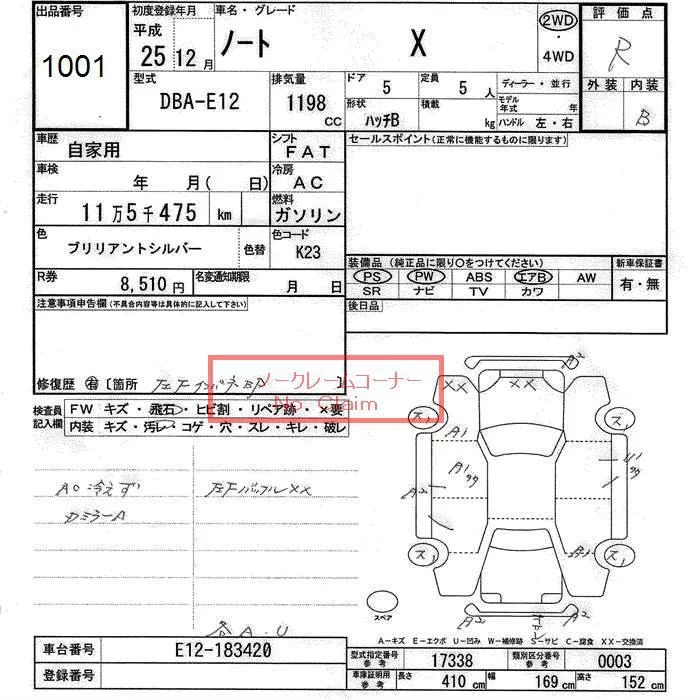 出品番号
1001
初度登録年月
平成
25 12 月
車名・グレード
ノート X
2WD
・
4WD
評価点
R
外装 内装
B
型式
DBA-E12
排気量
1198
CC
ドア
5
定員
5 人
ディーラー・並行
形状
ハッチB
積載
kg
モデル
年式 年
ハンドル 左・右
車歴
自家用
シフト
FAT
車検
年 月( 日)
冷房
AC
走行
11万5千475 km
燃料
ガソリン
色
ブリリアントシルバー
色替
色コード
K23
R券
8,510 円
名変通知期限
月 日
セールスポイント(正常に機能するものに限ります)
装備品 (純正品に限り○をつけてください)
新車保証書
PS PW ABS エアB AW
SR ナビ TV カワ
有・無
後日品
注意事項申告欄(不具合内容等は具体的に記入して下さい)
修復歴 有 [箇所 左Fインパネ ]
ノークレームコーナー
No. Claim
検査員
記入欄
FW キズ・飛石・ヒビ割・リペア跡・×要
内装 キズ・汚レ・コゲ・穴・スレ・キレ・破レ
AC冷えず
左Fバッフルxx
ミラーA
A・U
A2
xx
xx
ス1
ス1
A1
A1
A2
U1
ス1
ス1
A1
A2
A2
スペア
A-キズ E-エクボ U-凹み W-補修跡 S-サビ C-腐食 XX-交換済
車台番号
E12-183420
登録番号
型式指定番号
参考
17338
類別区分番号
参考
0003
車庫証明用
参考
長さ
410 cm
幅
169 cm
高さ
152 cm